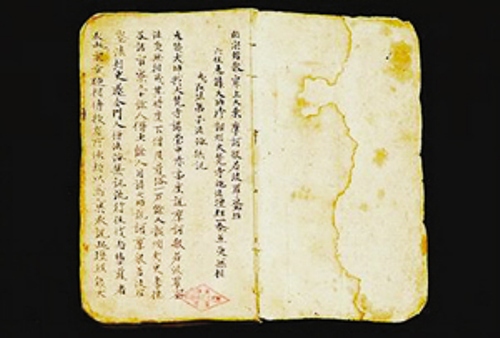 南宗頓教最上大乘摩訶般若波羅蜜經
六祖惠能大師於韶州大梵寺施法壇經一卷兼受無相
弘法弟子法海集記
惠能大師於大梵寺講堂中昇高座說摩訶般若波羅蜜
法受無相戒其時座下僧尼道俗一萬餘人韶州刺史
及諸官寮三十餘人儒士餘人同請大師說摩訶般若波羅
蜜法刺史遂令門人僧法海集記流行後代與學道者
承此宗旨遞相傳授有所依約以為稟承說此壇經能大